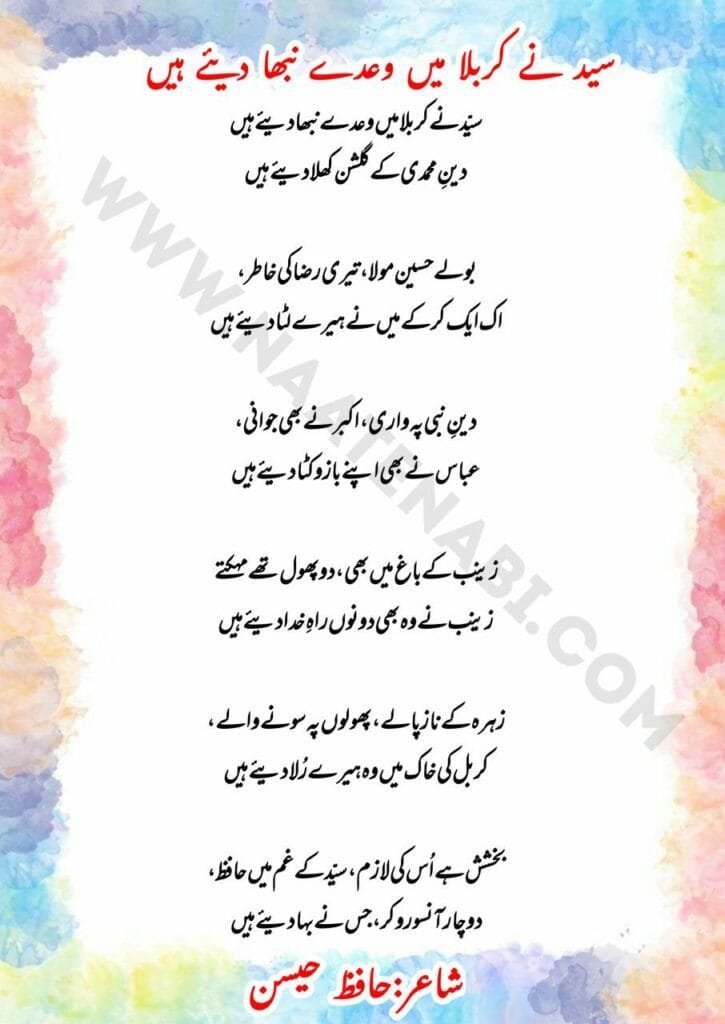 سید نے کربلا میں وعدے نبھا دیئے ہیں
سیّد نے کربلا میں وعدے نبھا دیئے ہیں
دینِ محمدی کے گلشن کھلا دیئے ہیں
بولے حسین مولا، تیری رضا کی خاطر،
اک ایک کرکے میں نے ہیرے لٹا دیئے ہیں
دینِ نبی پہ واری، اکبر نے بھی جوانی،
عباس نے بھی اپنے بازو کٹا دیئے ہیں
زینب کے باغ میں بھی، دو پھول تھے مہکتے
زینب نے وہ بھی دونوں راہِ خدا دیئے ہیں
زہرہ کے ناز پالے، پھولوں پہ سونے والے،
کربل کی خاک میں وہ ہیرے رُلا دیئے ہیں
بخشش ہے اُس کی لازم، سیّد کے غم میں حافظ،
دو چار آنسو رو کر، جس نے بہا دیئے ہیں
شاعر:حافظ حیسن
WWW.NAATENABI.COM